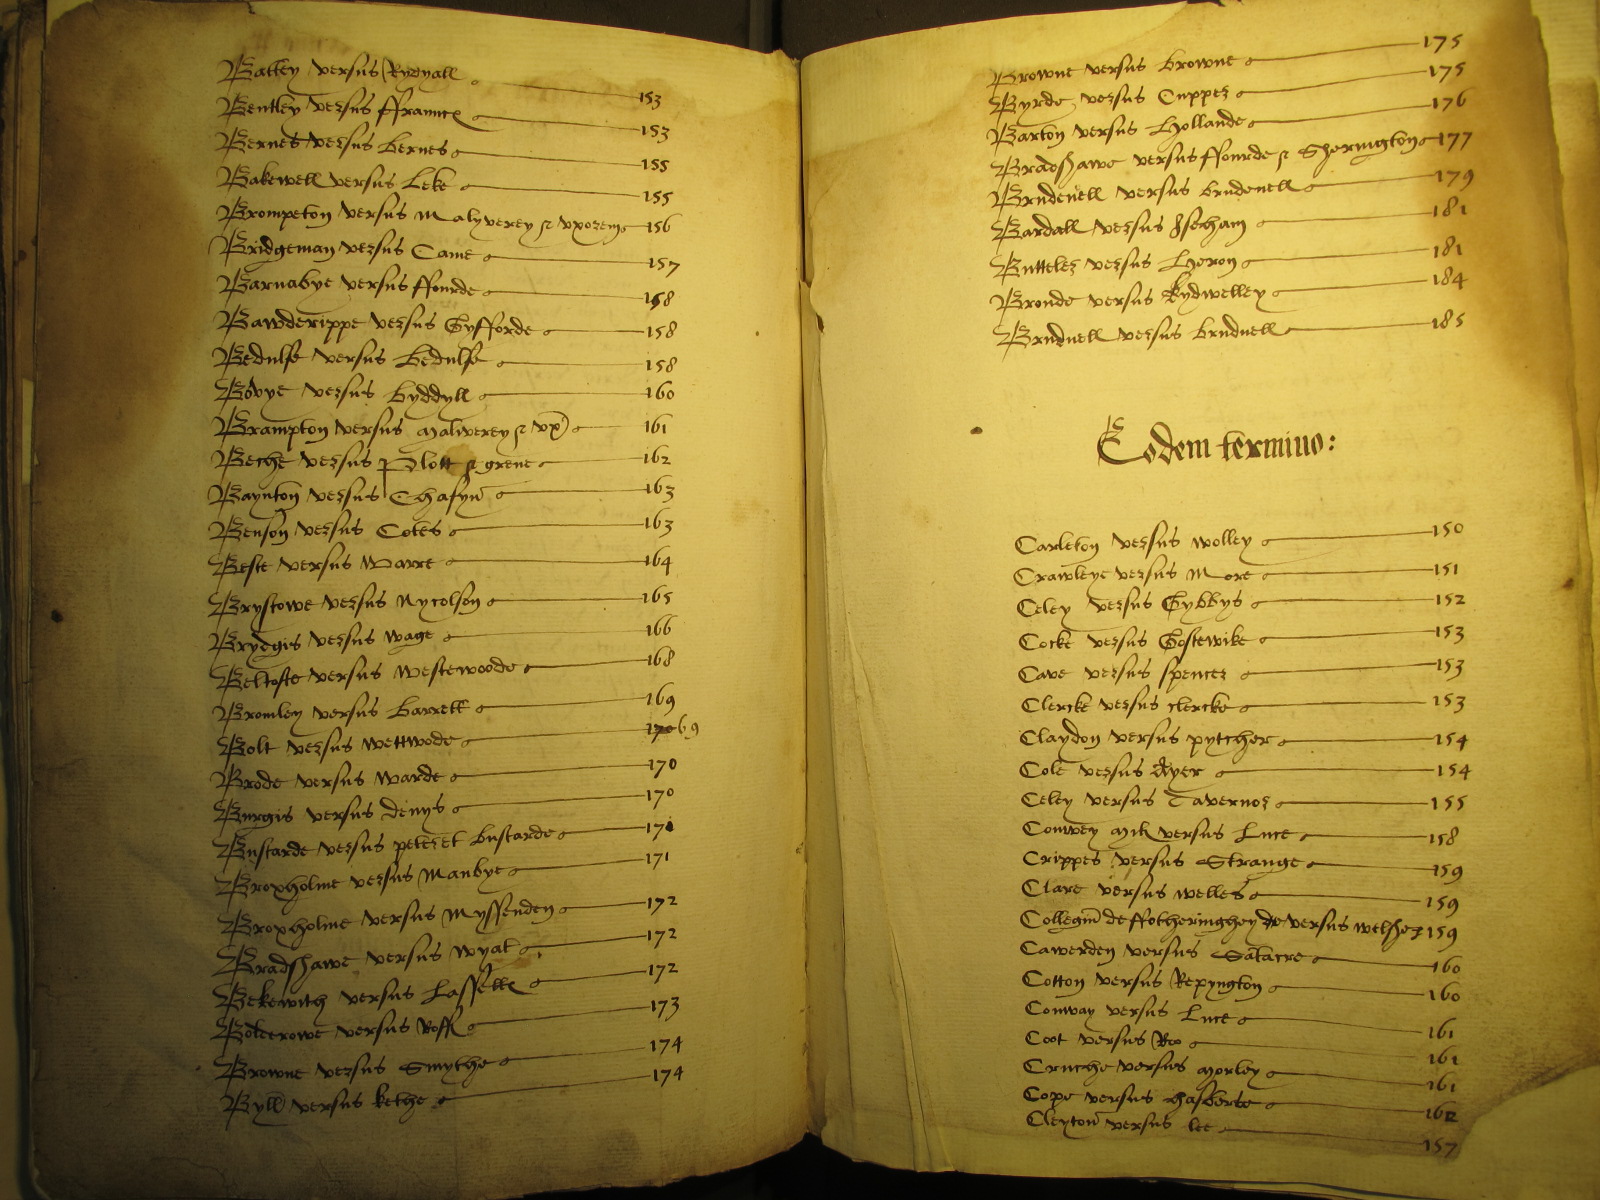 Batley versus Rydyall 153
Bentley versus ffraunce 153
Bernes versus bernes 155
Bakewell versus Leke 155
Brompton versus Malyverey & vxorem 156
Bridgeman versus Came 157
Barnabye versus ffourde 158
Bawderippe versus Gyfforde 158
Bedulfe versus Bedulfe 158
Bovye versus byddyll 160
Brampton versus Maliverey & vx 161
Beche versus Plott & grene 162
Baynton versus Chafyn 163
Benson versus Cotes 163
Beste versus Warre 164
Brystowe versus Nycolson 165
Brydgis versus wage 166
Beltofte versus westewoode 168
Bromley versus Barrett 169
Bolt versus wettwode 69
Brode versus warde 170
Burgis versus denys 170
Bustarde versus peter et bustarde 171
Broxholme versus Manbye 171
Broxholme versus Myssenden 172
Bradshawe versus wyat 172
Bekewith versus Lassells 172
Bolterowe versus Roff 173
Browne versus Smythe 174
Byll versus kethe 174
Browne versus browne 175
Byrde versus Cupper 175
Barton versus Hollande 176
Bradshawe versus ffourde & Sherington 177
Brudenell versus brudenell 179
Bardall versus Isecham 181
Butteler versus Heron 181
Bronde versus kydwelley 184
Brudnell versus brudnell 185
Eodem termino:
Carleton versus wolley 150
Crawleye versus More 151
Celey versus Gybbys 152
Cocke versus Gostewike 153
Cave versus spencer 153
Clercke versus clercke 153
Claydon versus pytcher 154
Cole versus Ayer 154
Celey versus Tavernor 155
Conwey versus Luce 158
Crippes versus Strange 159
Clare versus welles 159
Collegiu de ffotheringhey versus welsher 159
Cawerden versus Satacre 160
Cotton versus Repyngton 160
Conway versus Luce 161
Coot versus Roo 161
Cruche versus Morley 161
Cope versus 162
Cleyton versus lee 157